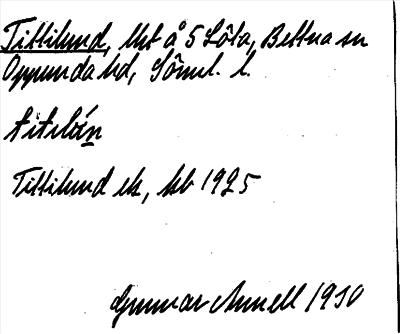 Tittilund, lht å 5 Löta, Bettna sn
Oppunda hd, Söml. l.
titilán
Tittilund ek, kb 1925
Gunnar Annell 1930